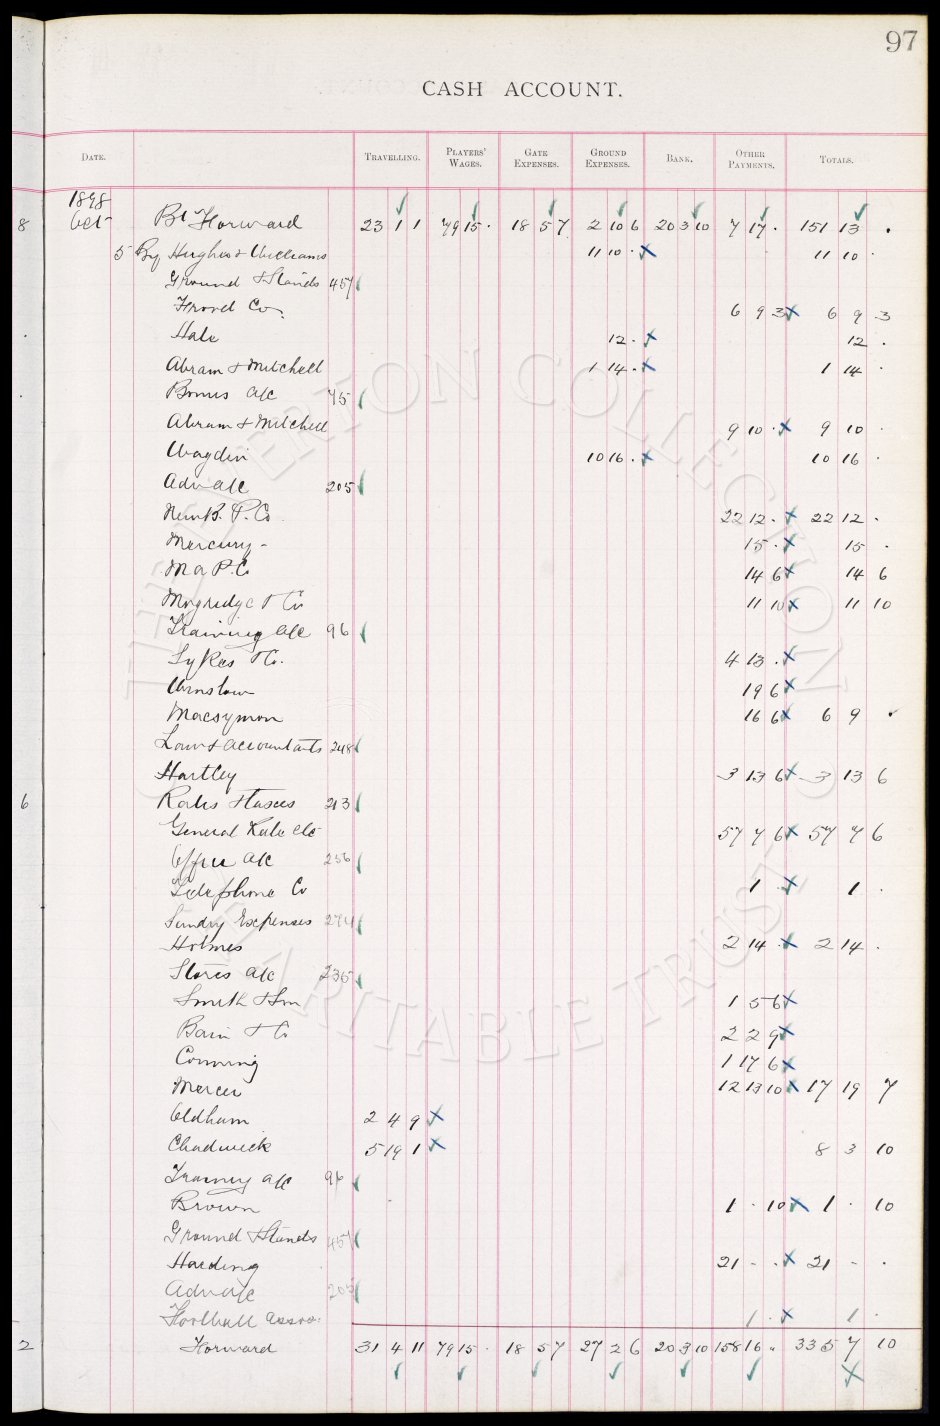 97
CASH ACCOUNT.
DATE. TRAVELLING. PLAYERS' WAGES. GATE EXPENSES. GROUND EXPENSES. BANK. OTHER PAYMENTS. TOTALS.
1898
8 Oct Bt Forward 23 1 1 79 15 . 18 5 7 2 10 6 20 3 10 7 17 . 151 13 .
5 By Hughes & Williams 11 10 . 11 10 .
Ground & Stands 457
Frond Co. 6 9 3 6 9 3
Hale 12 . 12 .
Abram & Mitchell 1 14 . 1 14 .
Bonus a/c 75
Abram & Mitchell 9 10 . 9 10 .
10 16 . 10 16 .
Adv a/c 205
New B. P. Co 22 12 . 22 12 .
Mercury 15 . 15 .
M a P. Co 14 6 14 6
Mogridge & Co 11 10 11 10
Training a/c 96
Sykes & Co. 4 13 .
19 6
Macsymon 16 6 6 9 .
Law & Accountants 248
Hartley 3 13 6 3 13 6
6 Rates & Taxes 213
General Rate etc 57 7 6 57 7 6
Office a/c 256
Telephone Co 1 . 1 .
Sundry Expenses 274
Holmes 2 14 . 2 14 .
Stores a/c 235
Smith & Son 1 5 6
Bain & Co 2 2 9
Conning 1 17 6
Mercer 12 13 10 17 19 7
Oldham 2 4 9
Chadwick 5 19 1 8 3 10
Training a/c 96
Brown 1 . 10 1 . 10
Ground & Stands 457
Harding 21 - . 21 - .
Adv a/c 205
Football Assoc: 1 . 1 .
2 Forward 31 4 11 79 15 . 18 5 7 27 2 6 20 3 10 158 16 . 335 7 10
THE EVERTON COLLECTION
CHARITABLE TRUST